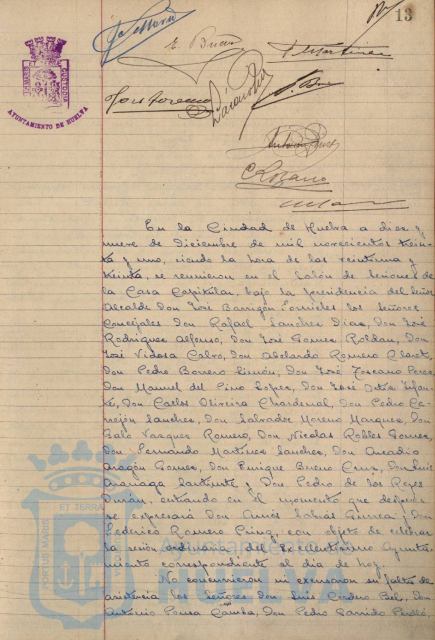 13
E. Bueno
AYUNTAMIENTO DE HUELVA
José Toscano
C Lozano
En la Ciudad de Huelva a diez y
nueve de Diciembre de mil novecientos trein-
ta y uno, siendo la hora de las veintiuna y
treinta, se reunieron en el Salón de Sesiones de
la Casa Capitular, bajo la presidencia del Señor
Alcalde Don José Barrigón Fornieles los Señores
Concejales Don Rafael Sanchez Diaz, Don José
Rodriguez Alfonso, Don José Gomez Roldan, Don
José Vidosa Calvo, Don Abelardo Romero Claret,
Don Pedro Borrero Limón, Don José Toscano Perez
Don Manuel del Pino Lopez, Don José Ortiz Infan-
te, Don Carlos Oliveira Chardenal, Don Pedro Ce-
rrejón Sanchez, Don Salvador Moreno Marquez, Don
Galo Vazquez Romero, Don Nicolas Robles Gomez,
Don Fernando Martinez Sanchez, Don Amadio
Aragón Gomez, Don Enrique Bueno Cruz, Don Luis
y Don Pedro de los Reyes
Durán, entrando en el momento que después
se expresará Don Amós Sabras Gurrea y Don
Federico Romero con objeto de celebrar
la sesión ordinaria del Excelentisimo Ayunta-
miento correspondiente al dia de hoy.
No concurrieron ni excusaron su falta de
asistencia los Señores Don Luis Cordero Bel, Don
Antonio Pousa Camba, Don Pedro Garrido Perelló,
PORTUS MARIS ET TERRAE